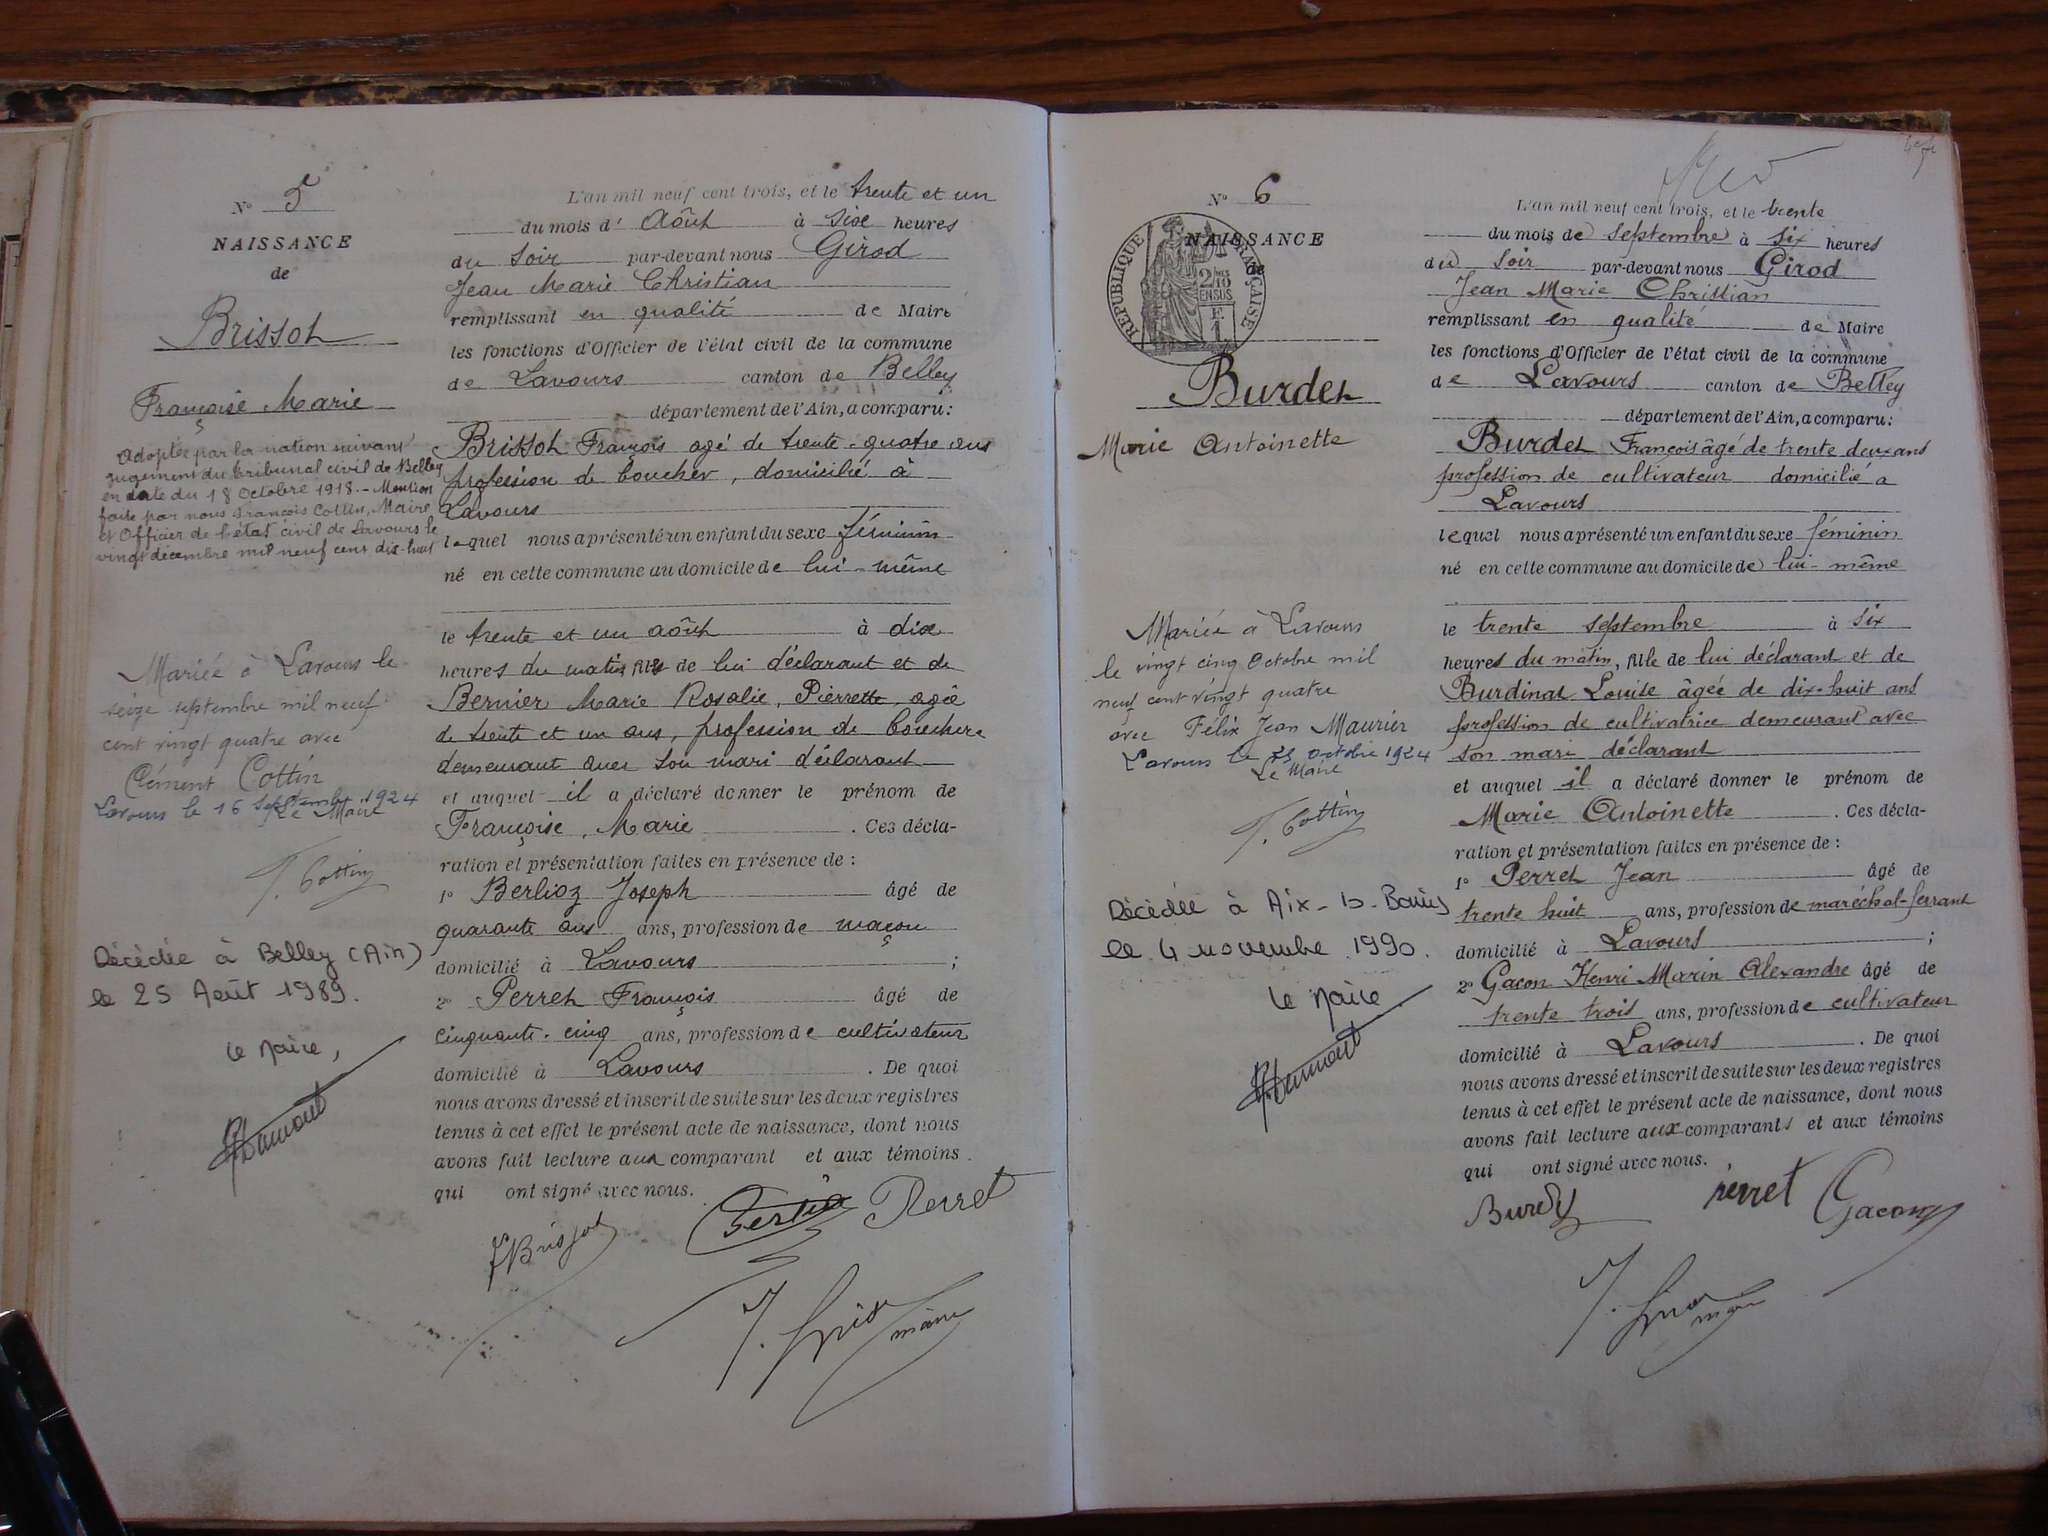 N° 5
NAISSANCE
de
Brissot
Françoise Marie
Adoptée par la nation suivant
jugement du tribunal civil de Belley
en date du 18 Octobre 1918. - Mention
faite par nous François Cottin, Maire
et Officier de l'état civil de Lavours le
vingt décembre mil neuf cent dix-huit
Mariée à Lavours le
seize septembre mil neuf
cent vingt quatre avec
Clément Cottin
Lavours le 16 septembre 1924
Le Maire
F. Cottin
Décédée à Belley (Ain)
le 25 Août 1989.
Le Maire,
L'an mil neuf cent trois, et le trente et un
du mois d' Août à six heures
du soir par-devant nous Girod
Jean Marie Christian
remplissant en qualité de Maire
les fonctions d'Officier de l'état civil de la commune
de Lavours canton de Belley
département de l'Ain, a comparu:
Brissot François agé de trente-quatre ans
profession de boucher, domicilié à
Lavours
lequel nous a présenté un enfant du sexe féminin
né en cette commune au domicile de lui-même
le trente et un août à dix
heures du matin, fille de lui déclarant et de
Bernier Marie Rosalie, Pierrette, agée
de trente et un ans, profession de bouchère
demeurant avec son mari déclarant
et auquel il a déclaré donner le prénom de
Françoise, Marie . Ces décla-
ration et présentation faites en présence de :
1° Berlioz Joseph âgé de
quarante ans ans, profession de maçon
domicilié à Lavours ;
2° Perret François âgé de
cinquante-cinq ans, profession de cultivateur
domicilié à Lavours . De quoi
nous avons dressé et inscrit de suite sur les deux registres
tenus à cet effet le présent acte de naissance, dont nous
avons fait lecture aux comparant et aux témoins
qui ont signé avec nous.
F Brissot Perret
maire
N° 6
NAISSANCE
de
RÉPUBLIQUE FRANÇAISE
2/10
EN SUS
Burdet
Marie Antoinette
Mariée à Lavours
le vingt cinq Octobre mil
neuf cent vingt quatre
avec Félix Jean Maurier
Lavours le 25 octobre 1924
Le Maire
F. Cottin
Décédée à Aix-ls-Bains
le 4 novembre 1990.
Le Maire
L'an mil neuf cent trois, et le trente
du mois de septembre à six heures
du soir par-devant nous Girod
Jean Marie Christian
remplissant en qualité de Maire
les fonctions d'Officier de l'état civil de la commune
de Lavours canton de Belley
département de l'Ain, a comparu:
Burdet François âgé de trente deux ans
profession de cultivateur domicilié à
Lavours
lequel nous a présenté un enfant du sexe féminin
né en cette commune au domicile de lui-même
le trente septembre à six
heures du matin, fille de lui déclarant et de
Burdinat Louise âgée de dix-huit ans
profession de cultivatrice demeurant avec
son mari déclarant
et auquel il a déclaré donner le prénom de
Marie Antoinette . Ces décla-
ration et présentation faites en présence de :
1° Perret Jean âgé de
trente huit ans, profession de maréchal-ferrant
domicilié à Lavours ;
2° Gacon Henri Marin Alexandre âgé de
trente trois ans, profession de cultivateur
domicilié à Lavours . De quoi
nous avons dressé et inscrit de suite sur les deux registres
tenus à cet effet le présent acte de naissance, dont nous
avons fait lecture aux comparants et aux témoins
qui ont signé avec nous.
Burdet Perret Gacon